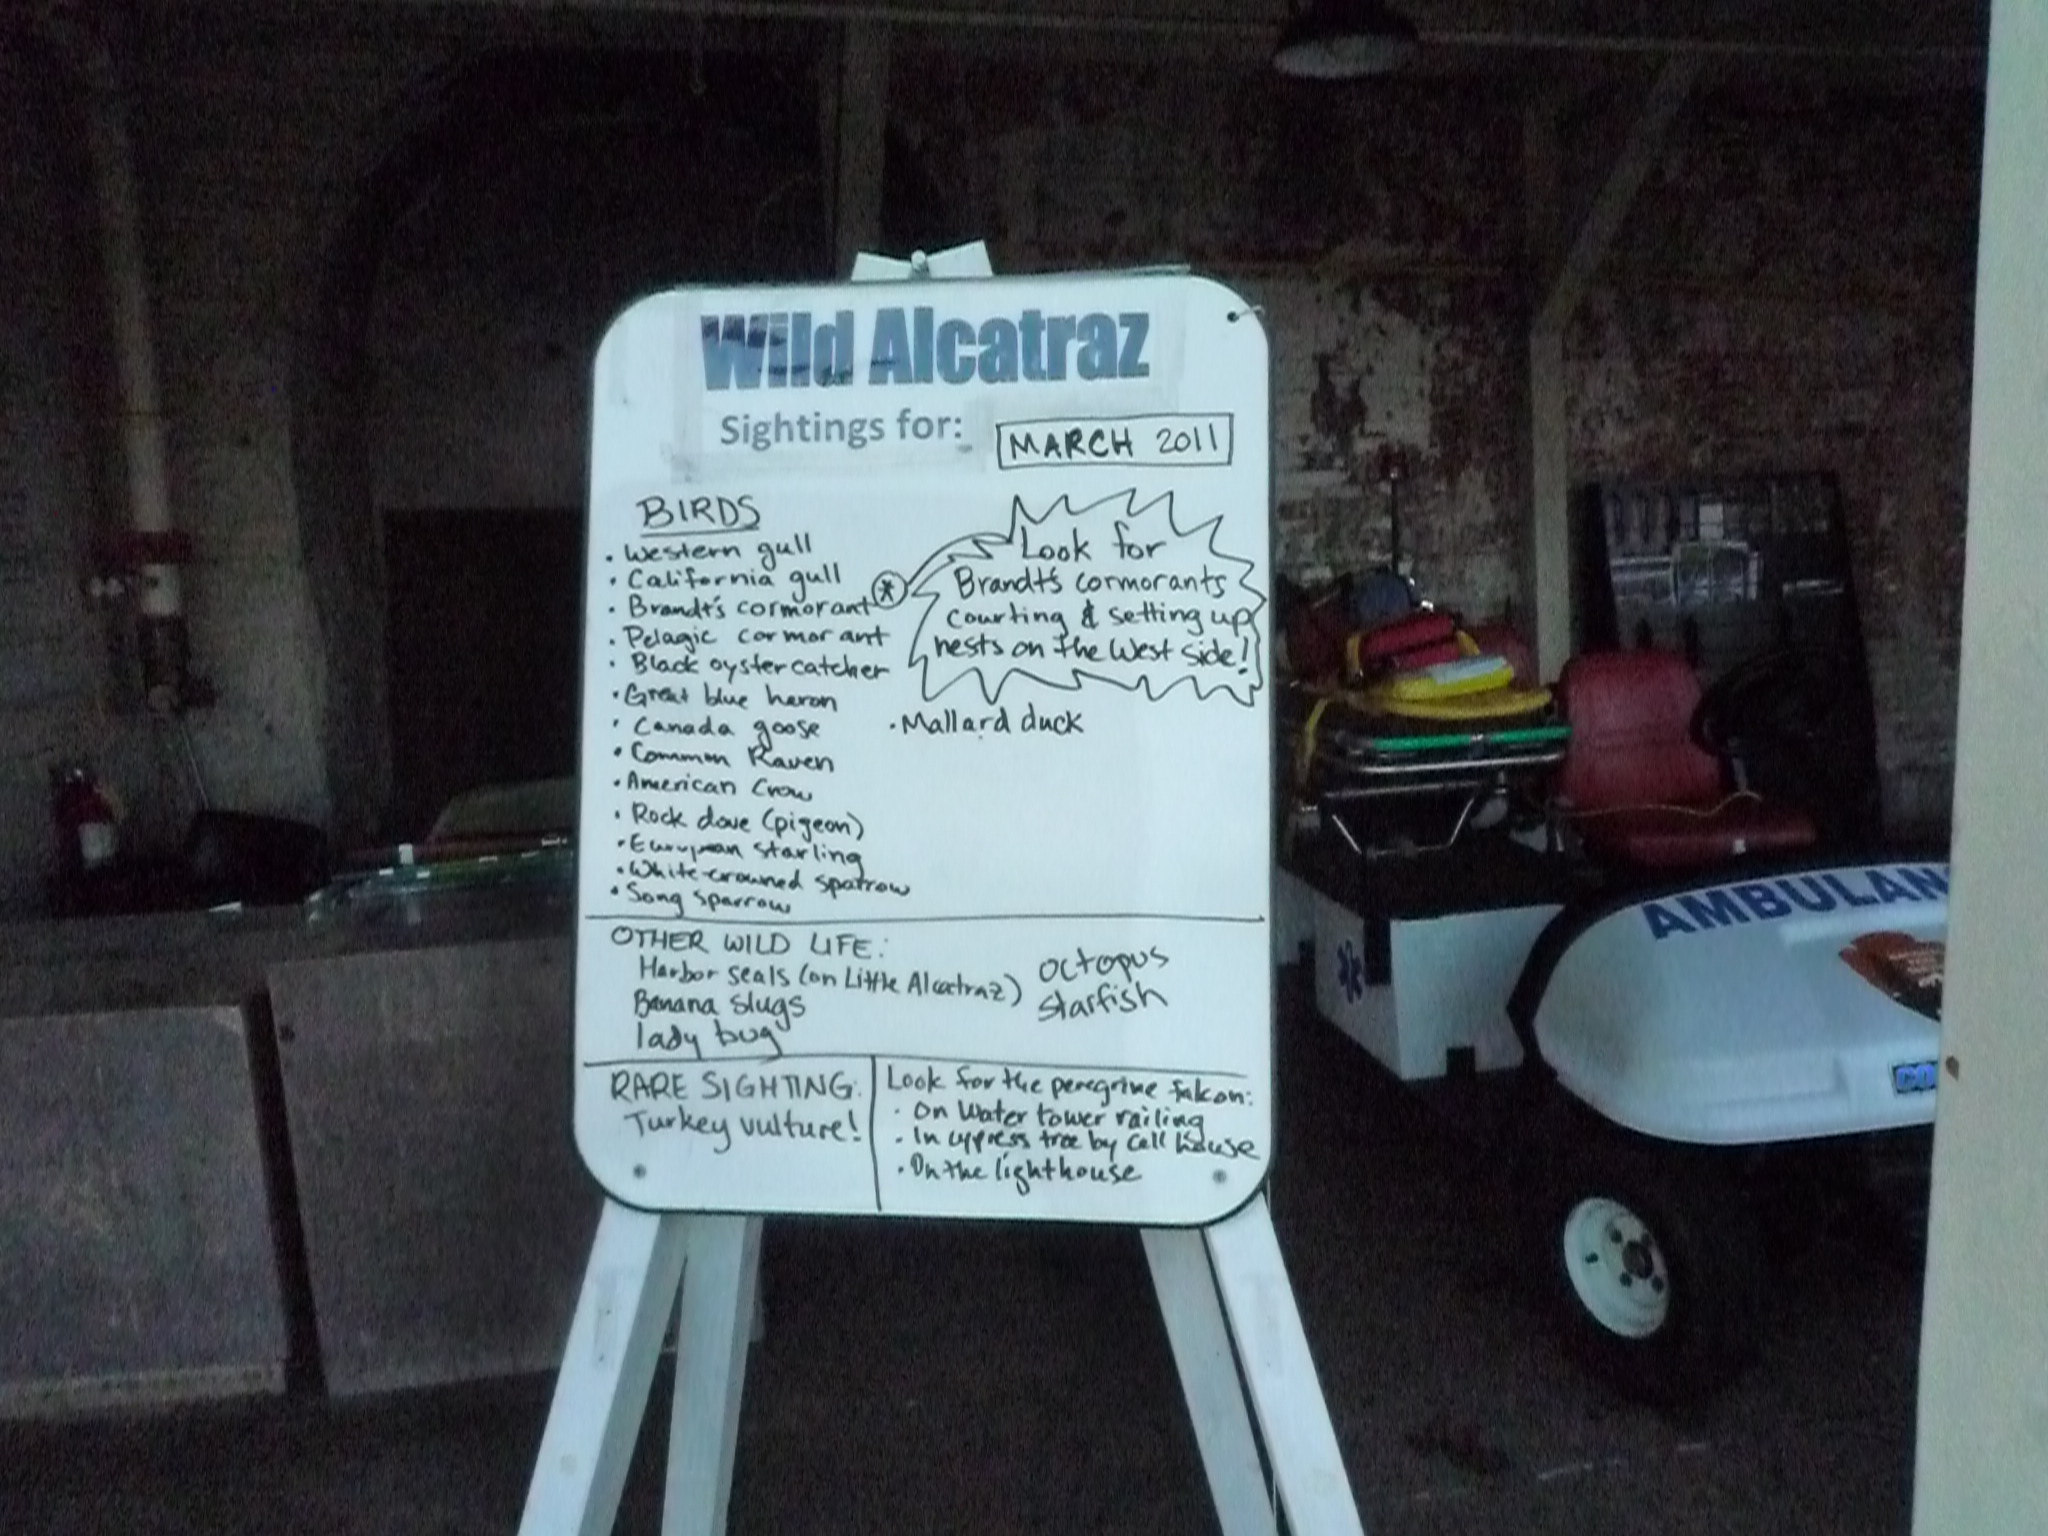 Wild Alcatraz
Sightings for:
MARCH 2011
BIRDS
• Western gull
• California gull
• Brandt's cormorant *
• Pelagic cormorant
• Black oystercatcher
• Great blue heron
• Canada goose
• Common Raven
• American Crow
• Rock dove (pigeon)
• European starling
• White-crowned sparrow
• Song sparrow
Look for
Brandt's cormorants
courting & setting up
nests on the West side!
• Mallard duck
OTHER WILD LIFE:
Harbor seals (on Little Alcatraz)
Banana slugs
lady bug
octopus
starfish
RARE SIGHTING:
Turkey vulture!
Look for the peregrine falcon:
• On Water tower railing
• In cypress tree by Cell house
• On the lighthouse
AMBULAN